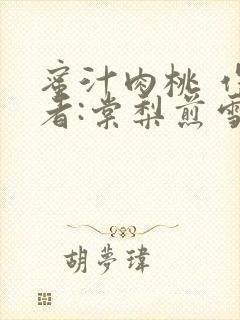 蜜汁肉桃 作
者:棠梨煎雪
胡夢瑋